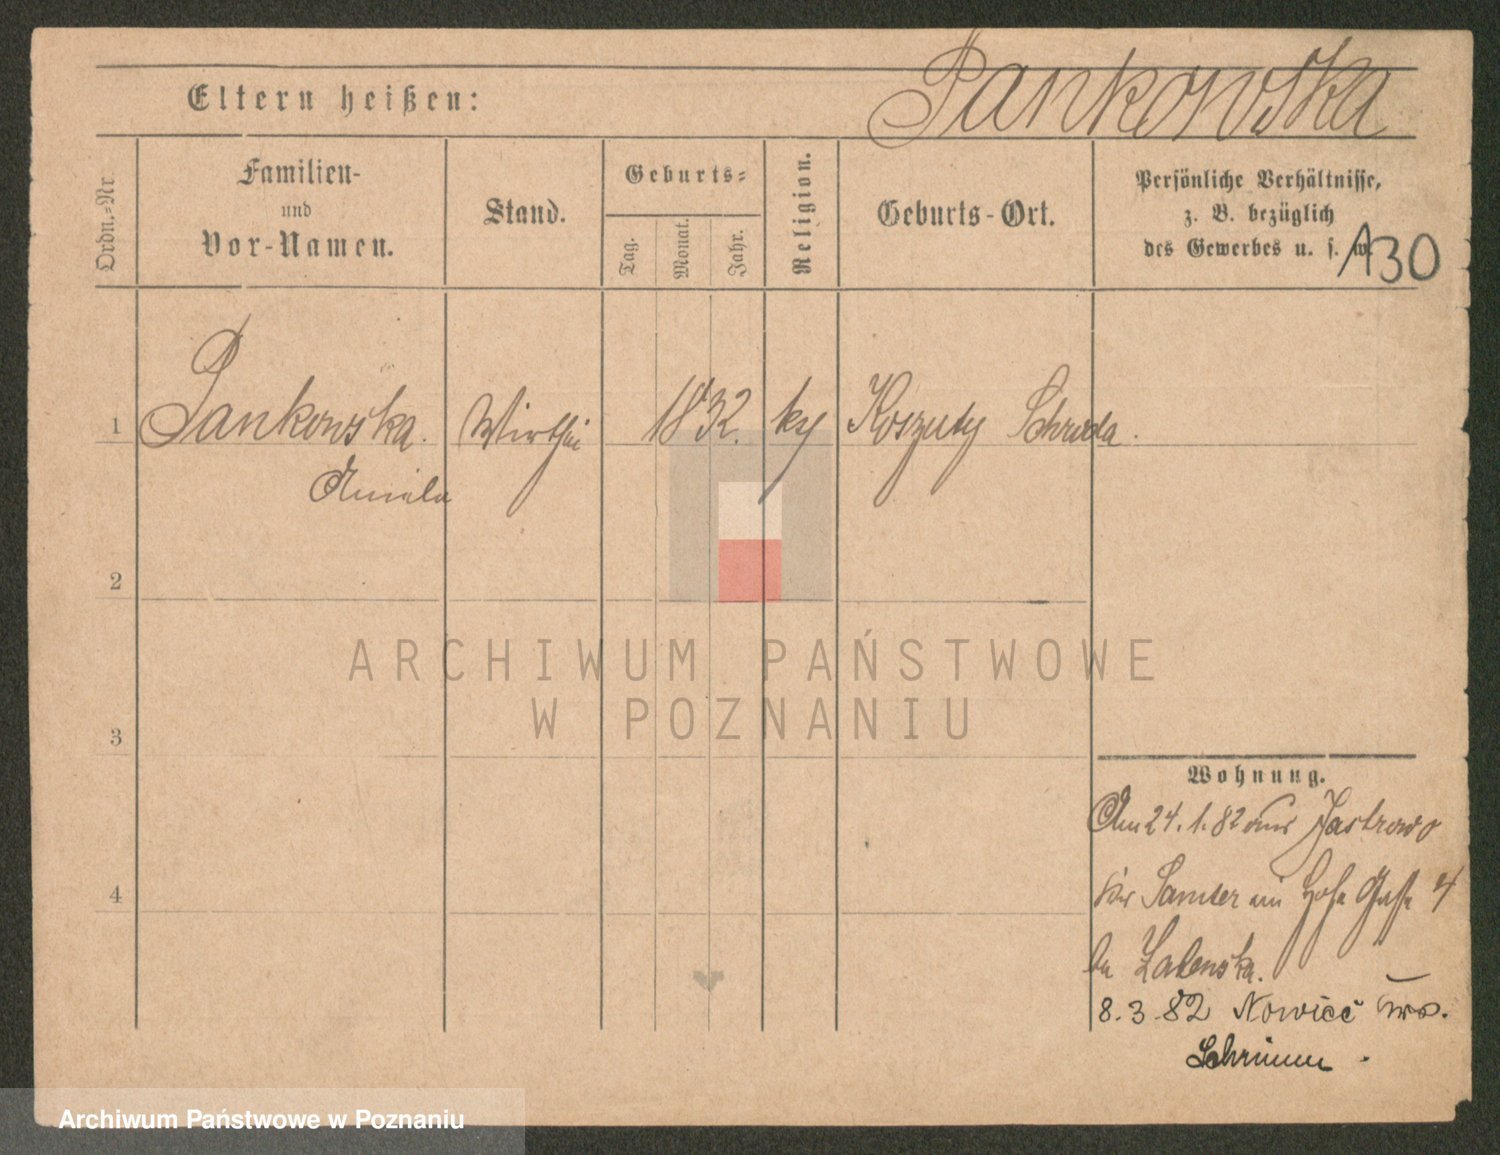 Pankowska
Eltern heißen:
Ordn.-Nr.
Familien-
und
Vor-Namen.
Stand.
Geburts-
Tag.
Monat.
Jahr.
Religion.
Geburts-Ort.
Persönliche Verhältnisse,
z. B. bezüglich
des Gewerbes u. s. w.
130
1 Pankowska. 1832. Koszuty Schroda.
Aniela
2
3
4
ARCHIWUM PAŃSTWOWE
W POZNANIU
Wohnung.
Am 24.1.82 aus Jastrowo
Samter 4
8.3.82
Schrimm.
Archiwum Państwowe w Poznaniu